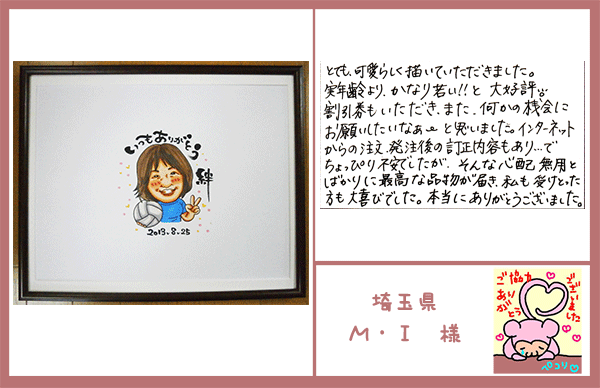 いつもありがとう
絆
2013.8.25
とても、可愛らしく描いていただきました。
実年齢より、かなり若い!!と 大好評
割引券もいただき、また、何かの機会に
お願いしたいなぁ〜と思いました。インターネット
からの注文、発注後の訂正内容もあり…で
ちょっぴり不安でしたが、そんな心配無用と
ばかりに最高な品物が届き、私も受けとった
方も大喜びでした。本当にありがとうございました。
埼玉県
M・I 様
ご協力
ありがとう
ございました
ペコリ